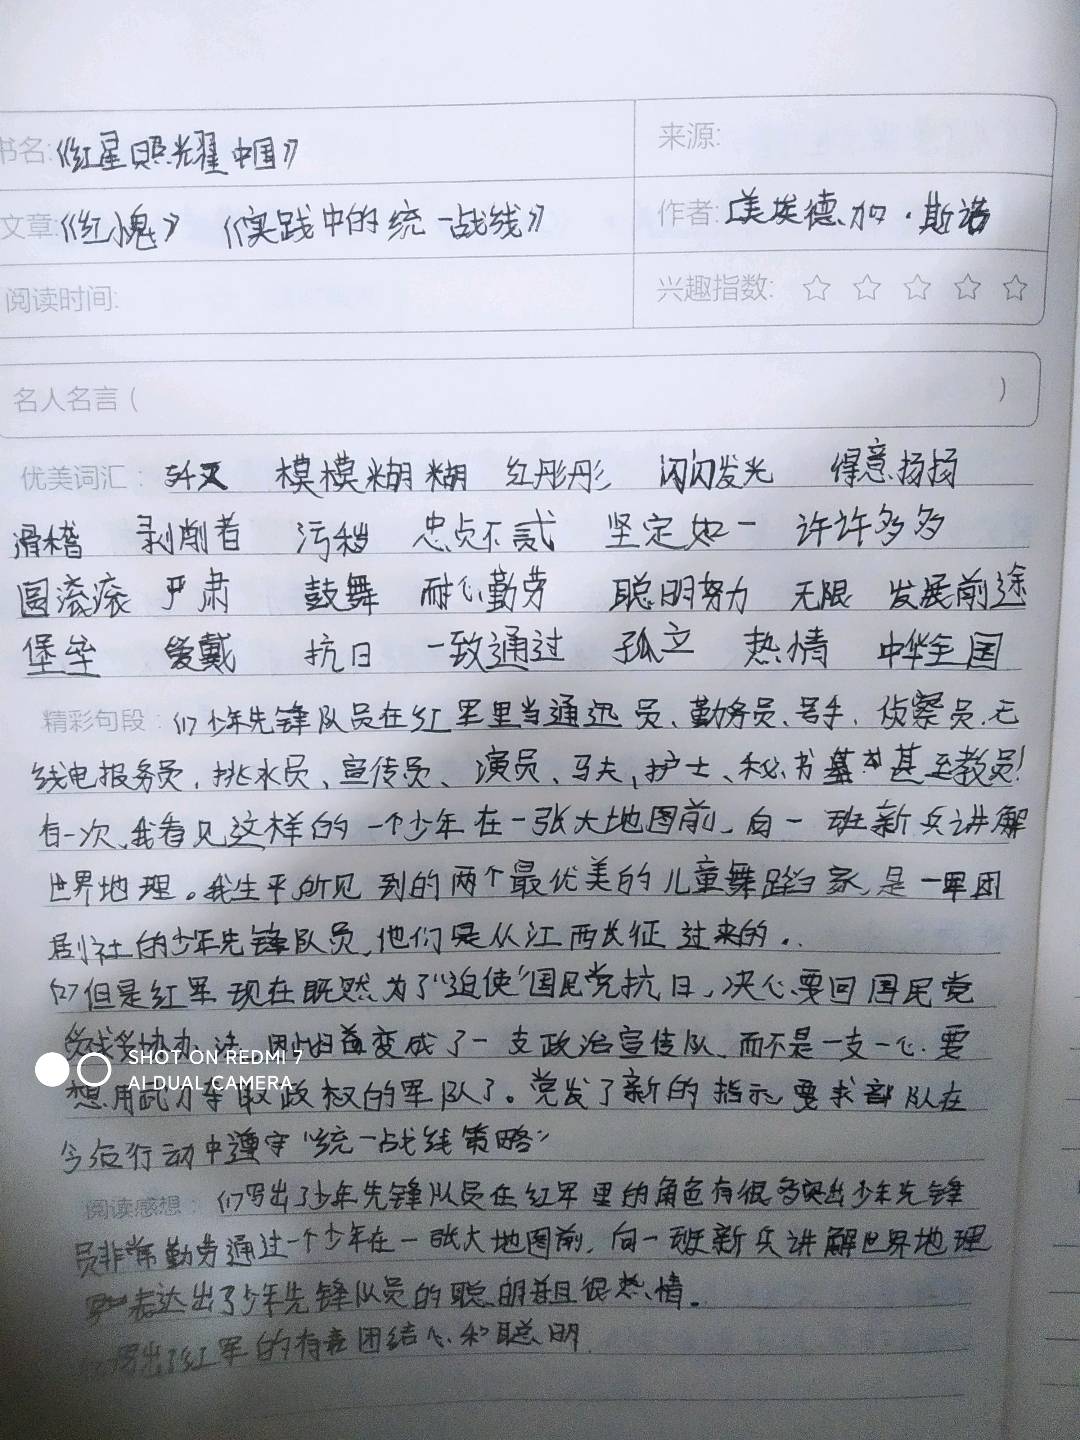 书名:《红星照耀中国》
来源:
文章:《红小鬼》 《实践中的统一战线》
作者:[美]埃德加·斯诺
阅读时间:
兴趣指数: ☆ ☆ ☆ ☆ ☆
名人名言( )
优美词汇: 模模糊糊 红彤彤 闪闪发光 得意扬扬
滑稽 剥削者 污秽 忠贞不贰 坚定如一 许许多多
圆滚滚 严肃 鼓舞 耐心勤劳 聪明努力 无限 发展前途
堡垒 爱戴 抗日 一致通过 孤立 热情 中华全国
精彩句段:(1)少年先锋队员在红军里当通迅员、勤务员、号手、侦察员、无
线电报务员、挑水员、宣传员、演员、马夫、护士、秘书甚至教员!
有一次,我看见这样的一个少年在一张大地图前,向一班新兵讲解
世界地理。我生平所见到的两个最优美的儿童舞蹈家,是一军团
剧社的少年先锋队员,他们是从江西长征过来的。
(2)但是红军现在既然为了"迫使"国民党抗日,决心要回国民党
变成了一支政治宣传队,而不是一支一心要
SHOT ON REDMI 7
AI DUAL CAMERA
想用武力夺取政权的军队了。党发了新的指示,要求部队在
今后行动中遵守"统一战线策略"
阅读感想:(1)写出了少年先锋队员在红军里的角色有很多突出少年先锋
员非常勤劳通过一个少年在一张大地图前,向一班新兵讲解世界地理
表达出了少年先锋队员的聪明并且很热情。
写出了红军的 团结心和聪明